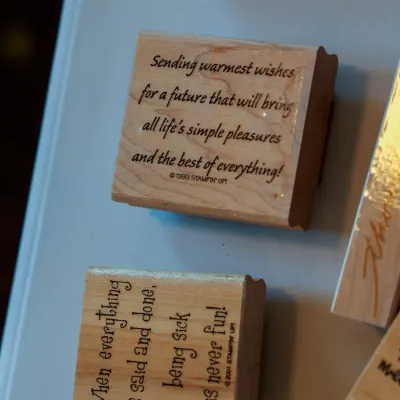 Sending warmest wishes
for a future that will bring
all life's simple pleasures
and the best of everything!
© 1999 STAMPIN' UP!
When everything
is said and done,
being sick
is never fun!
© 2001 STAMPIN' UP!